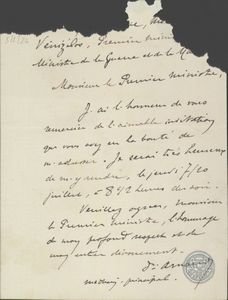 Venizelos, Premier mini
Ministre de la Guerre et de la Ma
Monsieur le Premier ministre,
J'ai l'honneur de vous
remercier de l'aimable invitation
que vous avez eu la bonté de
m'adresser. Je serai très heureux
de m'y rendre, le jeudi 7/20
juillet, à 8 1/2 heures du soir.
Veuillez agréer, Monsieur
le Premier ministre, l'hommage
de mon profond respect et de
mon entier dévouement.
médecin principal.